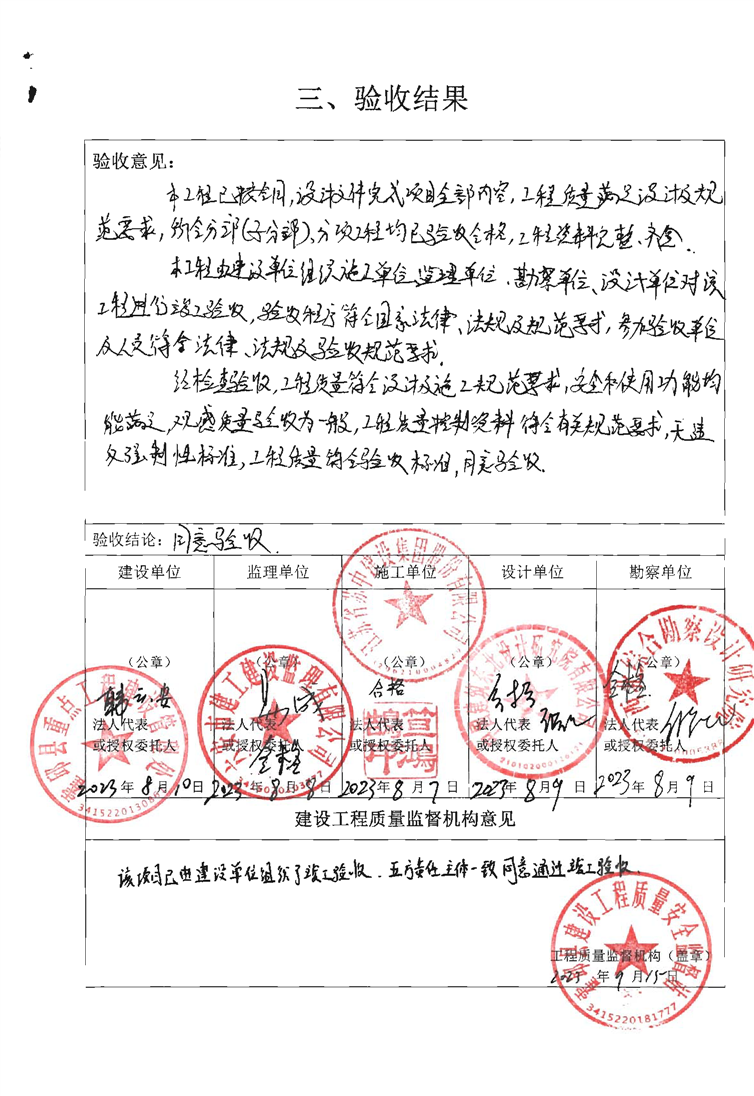 三、验收结果
验收意见：
本工程已按合同,设计文件完成项目全部内容,工程质量满足设计及规
范要求,所含分部(子分部),分项工程均已验收合格,工程资料完整、齐全.
本工程由建设单位组织施工单位、监理单位、勘察单位、设计单位对该
工程进行竣工验收,验收程序符合国家法律、法规及规范要求,参加验收单位
及人员符合法律、法规及验收规范要求.
经检查验收,工程质量符合设计及施工规范要求,安全和使用功能均
能满足,观感质量验收为一般,工程质量控制资料符合有关规范要求,无违
反强制性标准,工程质量符合验收标准,同意验收.
验收结论：同意验收.
建设单位 监理单位 施工单位 设计单位 勘察单位
（公章） （公章） （公章） （公章） （公章）
合格
法人代表 法人代表 法人代表 法人代表 法人代表
或授权委托人 或授权委托人 或授权委托人 或授权委托人 或授权委托人
2023年8月10日 2023年8月8日 2023年8月7日 2023年8月9日 2023年8月9日
建设工程质量监督机构意见
该项目已由建设单位组织了竣工验收.五方责任主体一致同意通过竣工验收.
工程质量监督机构（盖章）
2023年9月15日
霍邱县重点工程建设管理处
六安市建工建设监理有限公司
江苏省苏中建设集团股份有限公司
霍邱县建设工程质量安全监督站
3415220181777